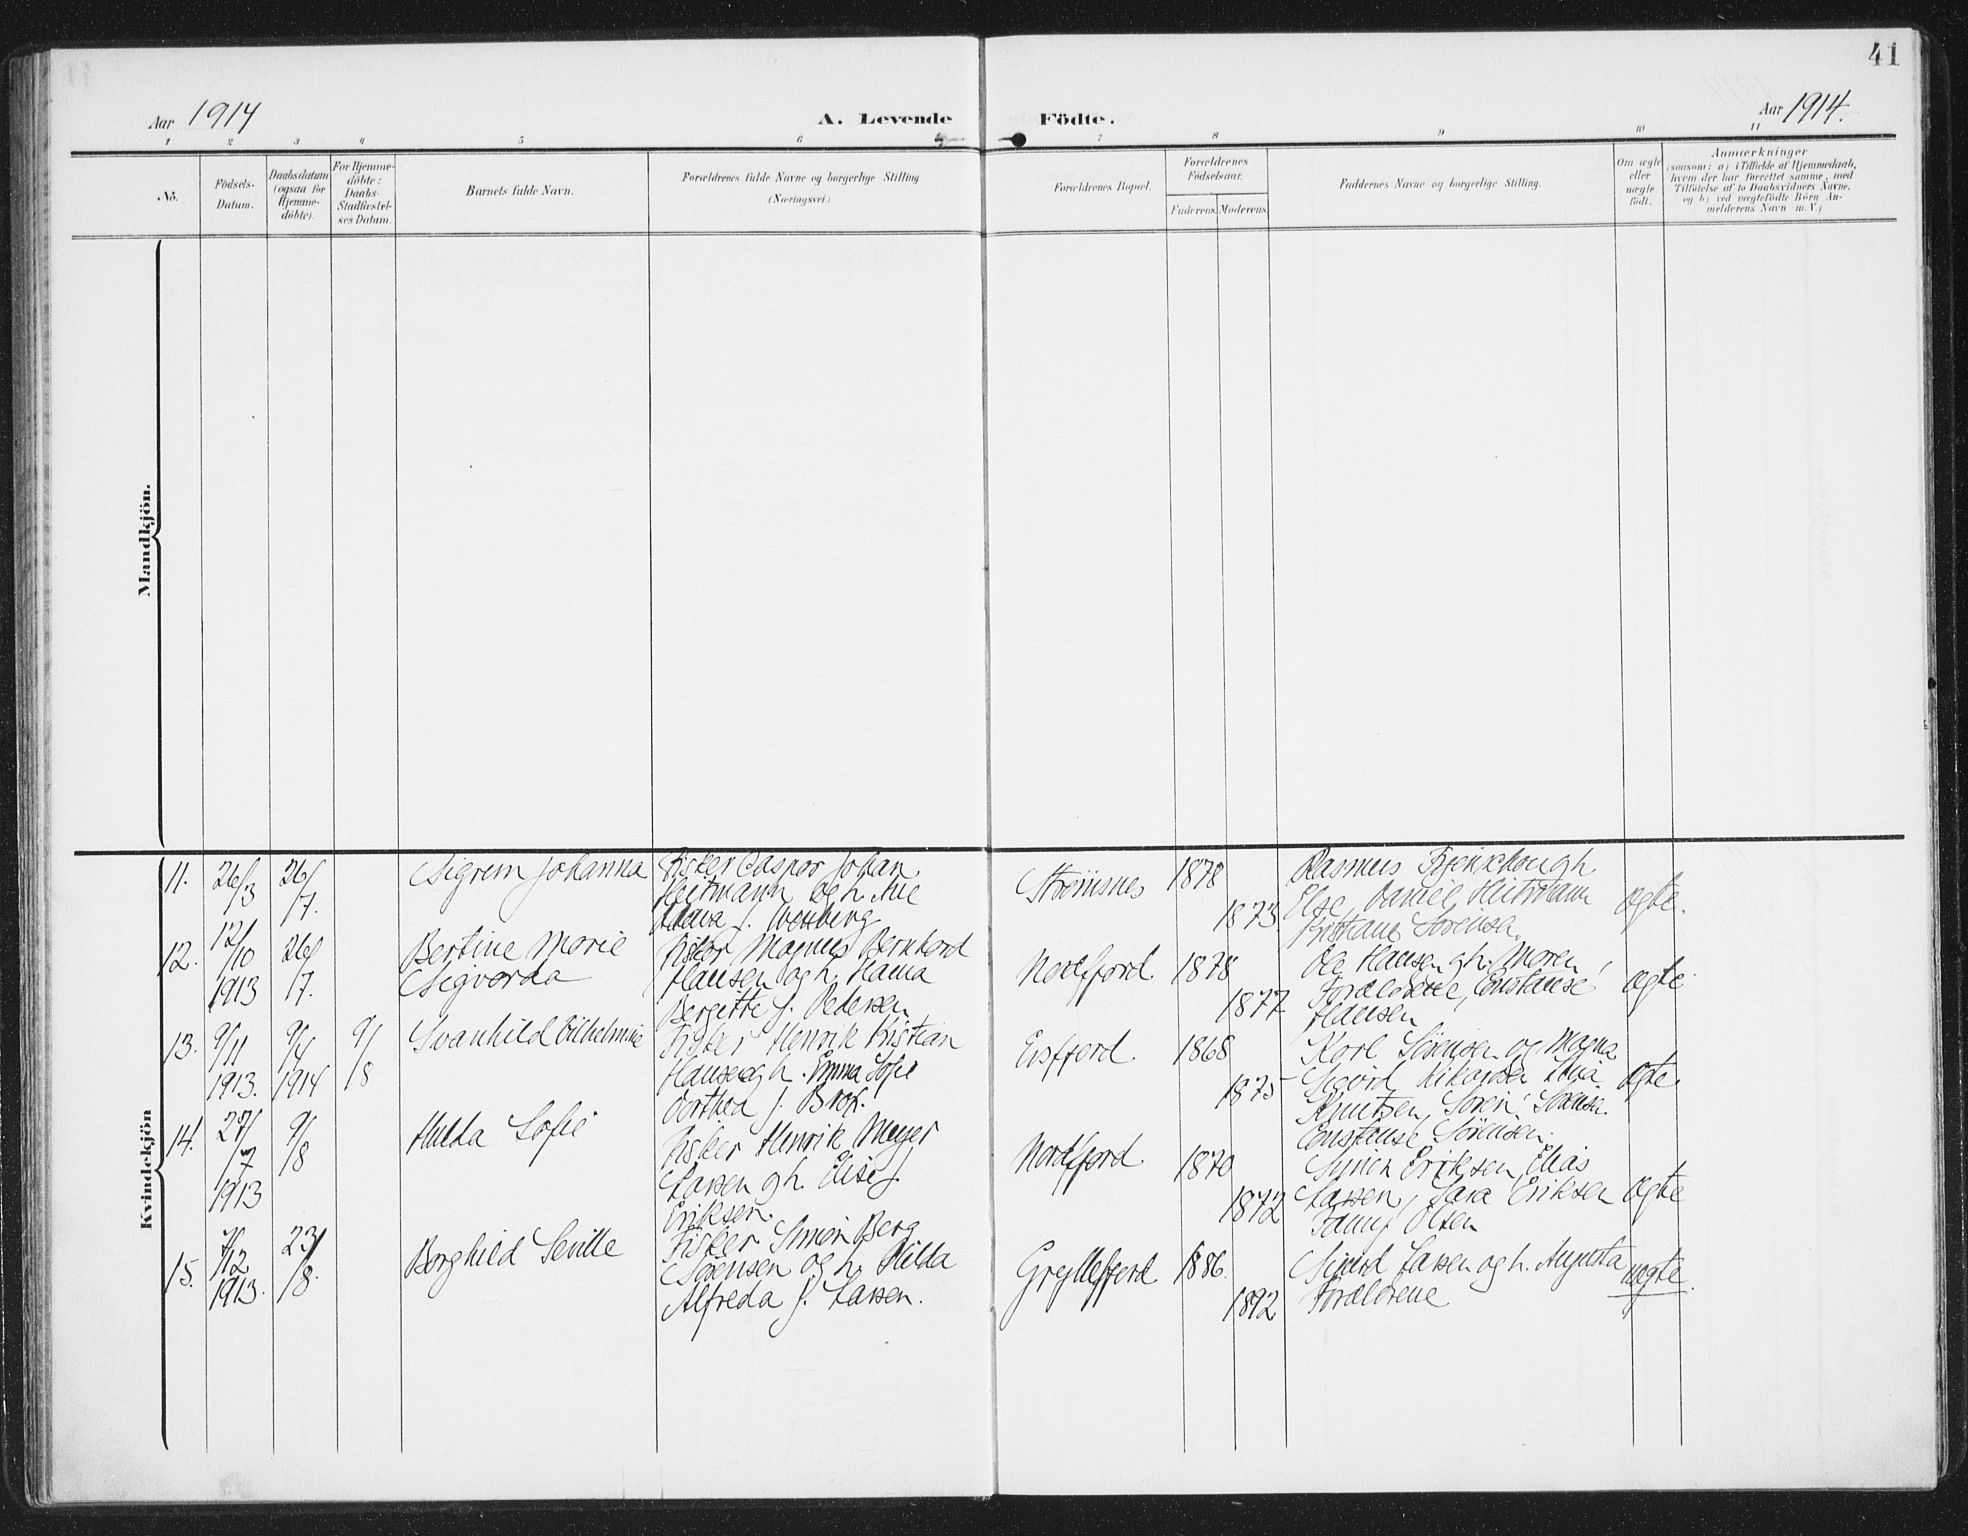 41
Aar 1914
A. Levende Födte.
Aar 1914.
1 2 3 4 5 6 7 8 9 10 11
No.
Födsels-
Datum.
Daabsdatum
(ogsaa for
Hjemme-
döbte).
For Hjemme-
döbte:
Daabs-
Stadfæstel-
ses Datum.
Barnets fulde Navn.
Forældrenes fulde Navne og borgerlige Stilling.
(Næringsvei.)
Forældrenes Bopæl.
Forældrenes
Födselsaar.
Faderens. Moderens.
Faddernes Navne og borgerlige Stilling.
Om ægte
eller
uægte
födt.
Anmærkninger
(saasom: a) i Tilfælde af Hjemmedaab,
hvem der har forrettet samme, med
Tilföielse af to Daabsvidners Navne,
og b) ved uægtefödte Börn An-
melderens Navn m. V.)
Mandkjön.
Kvindekjön
11. 26/3 26/7. Sigrem Johanna
Fisker Caspor Johan
Heitmann og h.
f.
Strømsnes 1878 1873
Rasmus gh
Else, Daniel
Kristiane Sørensen.
ægte.
12. 12/10 1913 26/7. Bertine Marie
Sigvarda
Fisker Magnus Bernhard
Hansen og h. Hanna
Bergitte f. Pedersen
Nordfjord 1878 1877
Ole Hansen gh. Maren,
Forældrene, Constanse
Hansen
ægte
13. 9/11 1913. 9/4 1914 9/8 Svanhild Vilhelmine
Fisker Henrik Kristian
Hansen og h. Emma Sofie
Dorthea f. Brox.
Eisfjord. 1868 1875
Karl Sørensen og Magna
Sigvard
Knutsen, Søren Sørensen.
Constanse Sørensen.
ægte
14. 27/7 1913 9/8 Hulda Sofie
Fisker Henrik Meyer
Larsen gh. Elise f.
Eriksen.
Nordfjord 1870 1872
Eriksen, Elias
Larsen, Sara Eriksen
Fanny Olsen
ægte
15. 7/12 1913. 23/8. Borghild Seville
Fisker Simon Berg
Sørensen og h. Hilda
Alfreda f. Larsen.
Gryllefjord 1886. 1892
Sivard Larsen og h. Augusta
Forældrene
uægte.